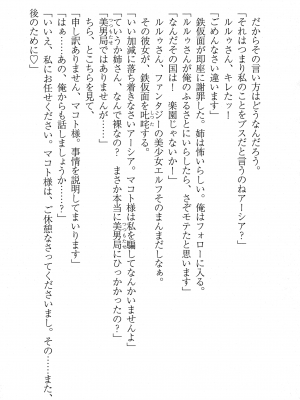 だからその言い方はどうなんだろう。
「それはつまり私のことをブスだと言うのねアーシア?」
ルルゥさん、キレたッ!
「ごめんなさい違います」
鉄仮面が即座に謝罪した。姉は怖いらしい。俺はフォローに入る。
「ルルゥさんが俺のふるさとにいらしたら、さぞモテたと思います」
「なんだその国は! 楽園じゃないか!」
ルルゥさん、ファンタジーの美少女エルフそのまんまだしなぁ。
その彼女が、鉄仮面を叱咤する。
「いい加減に落ち着きなさいアーシア。マコト様は私を騙してなんかいませんよ」
「ていうか姉さん、なんで裸なの? まさか本当に美男局にひっかかったの?」
「美男局ではありませんが……」
ちら、とこちらを見て、
「申し訳ありません、マコト様。事情を説明してまいります」
「はぁ……あの、俺からも話しましょうか……?」
「いいえ、私にお任せください。マコト様は、ご休憩なさってくださいまし。その……また、
後のために♡」